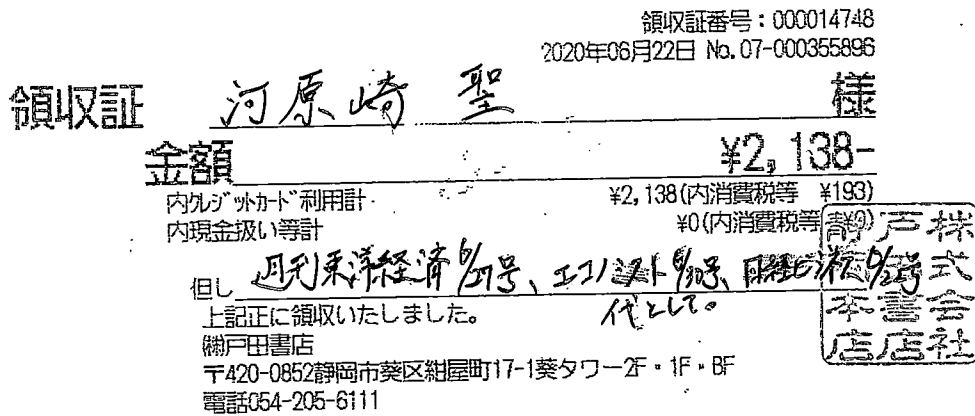 領収証番号:000014748
2020年06月22日 No.07-000355896
領収証 河原崎 聖 様
金額 ¥2,138-
内クレジットカード利用計 ¥2,138(内消費税等 ¥193)
内現金扱い等計 ¥0(内消費税等 ¥0)
但し 週刊東洋経済6/27号、エコノミスト6/30号、日経ビジネス6/22号
代として。
上記正に領収いたしました。
㈱戸田書店
〒420-0852静岡市葵区紺屋町17-1葵タワー2F・1F・BF
電話054-205-6111
株式会社
戸田書店
静岡本店